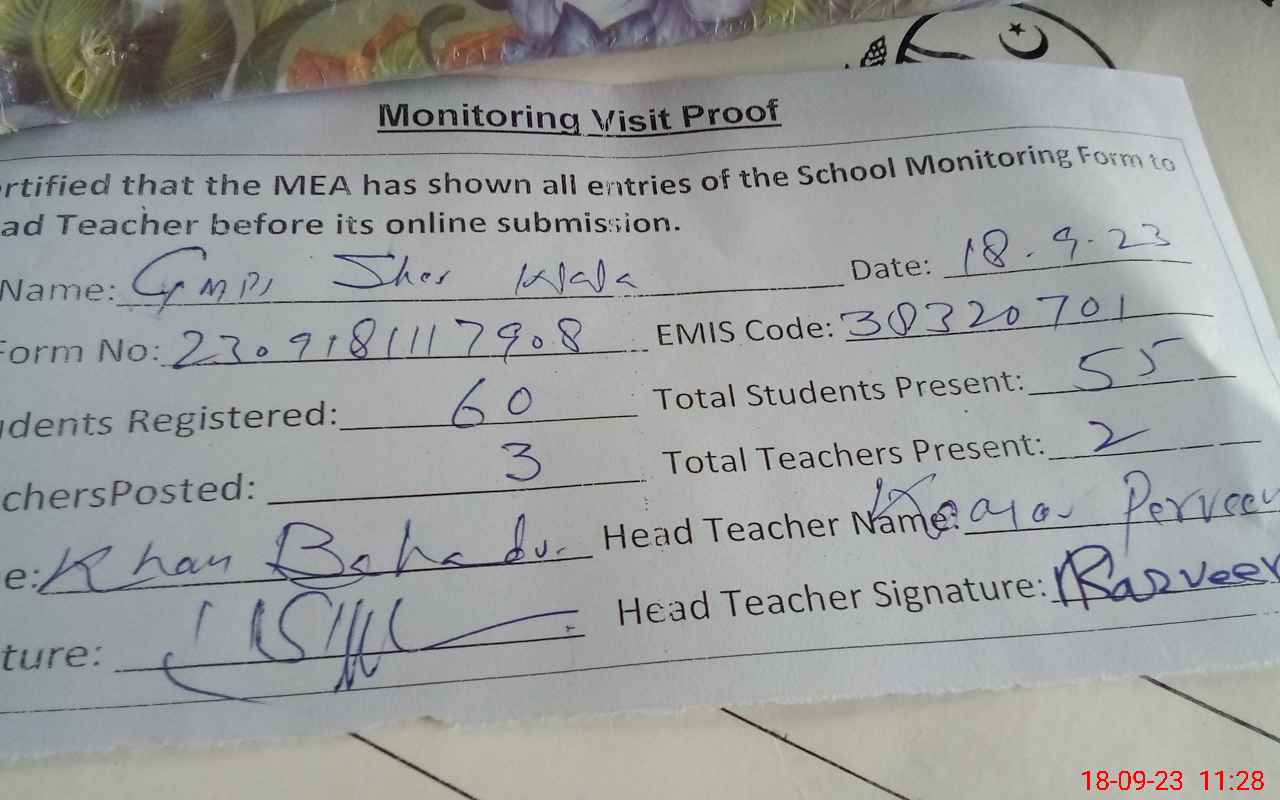 Monitoring Visit Proof
rtified that the MEA has shown all entries of the School Monitoring Form to
ad Teacher before its online submission.
Name: GMPS Sher Date: 18.9.23
Form No: 2309181117908 EMIS Code: 38320701
udents Registered: 60 Total Students Present: 55
chersPosted: 3 Total Teachers Present: 2
e: Khan Bahadur Head Teacher Name: Perveen
ture: Head Teacher Signature:
18-09-23 11:28